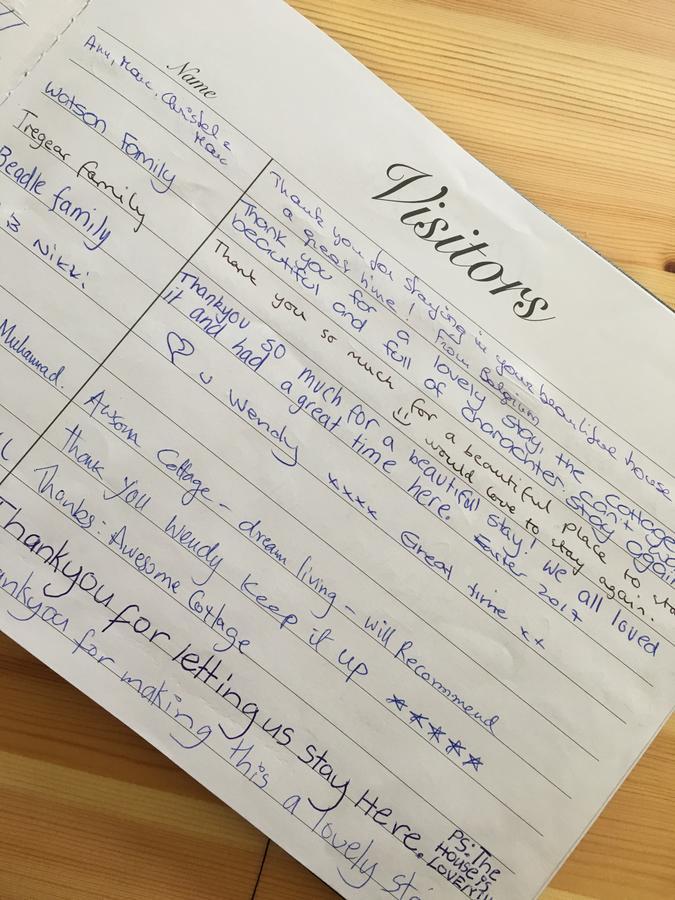 Visitors
Name
Ann, Marc, Christel &
Marc
Thank you for staying in your beautiful house
a great time! From Belgium
Watson Family
Thank you for a lovely stay, the cottage
beautiful and full of charachter. can't
stay again
Tregear family
Thank you so much for a beautiful place to
would love to stay again.
Beadle family
Thankyou so much for a beautiful stay! we all loved
it and had a great time here. Easter 2017
Nikki
♡ u Wendy xxxx Great time xx
Muhammad.
Awsom Cottage - dream living - will Recommend
Thank you Wendy keep it up *****
Thanks. Awesome Cottage
Thankyou for letting us stay Here. PS: The
House is
LOVELY!!
ankyou for making this a lovely